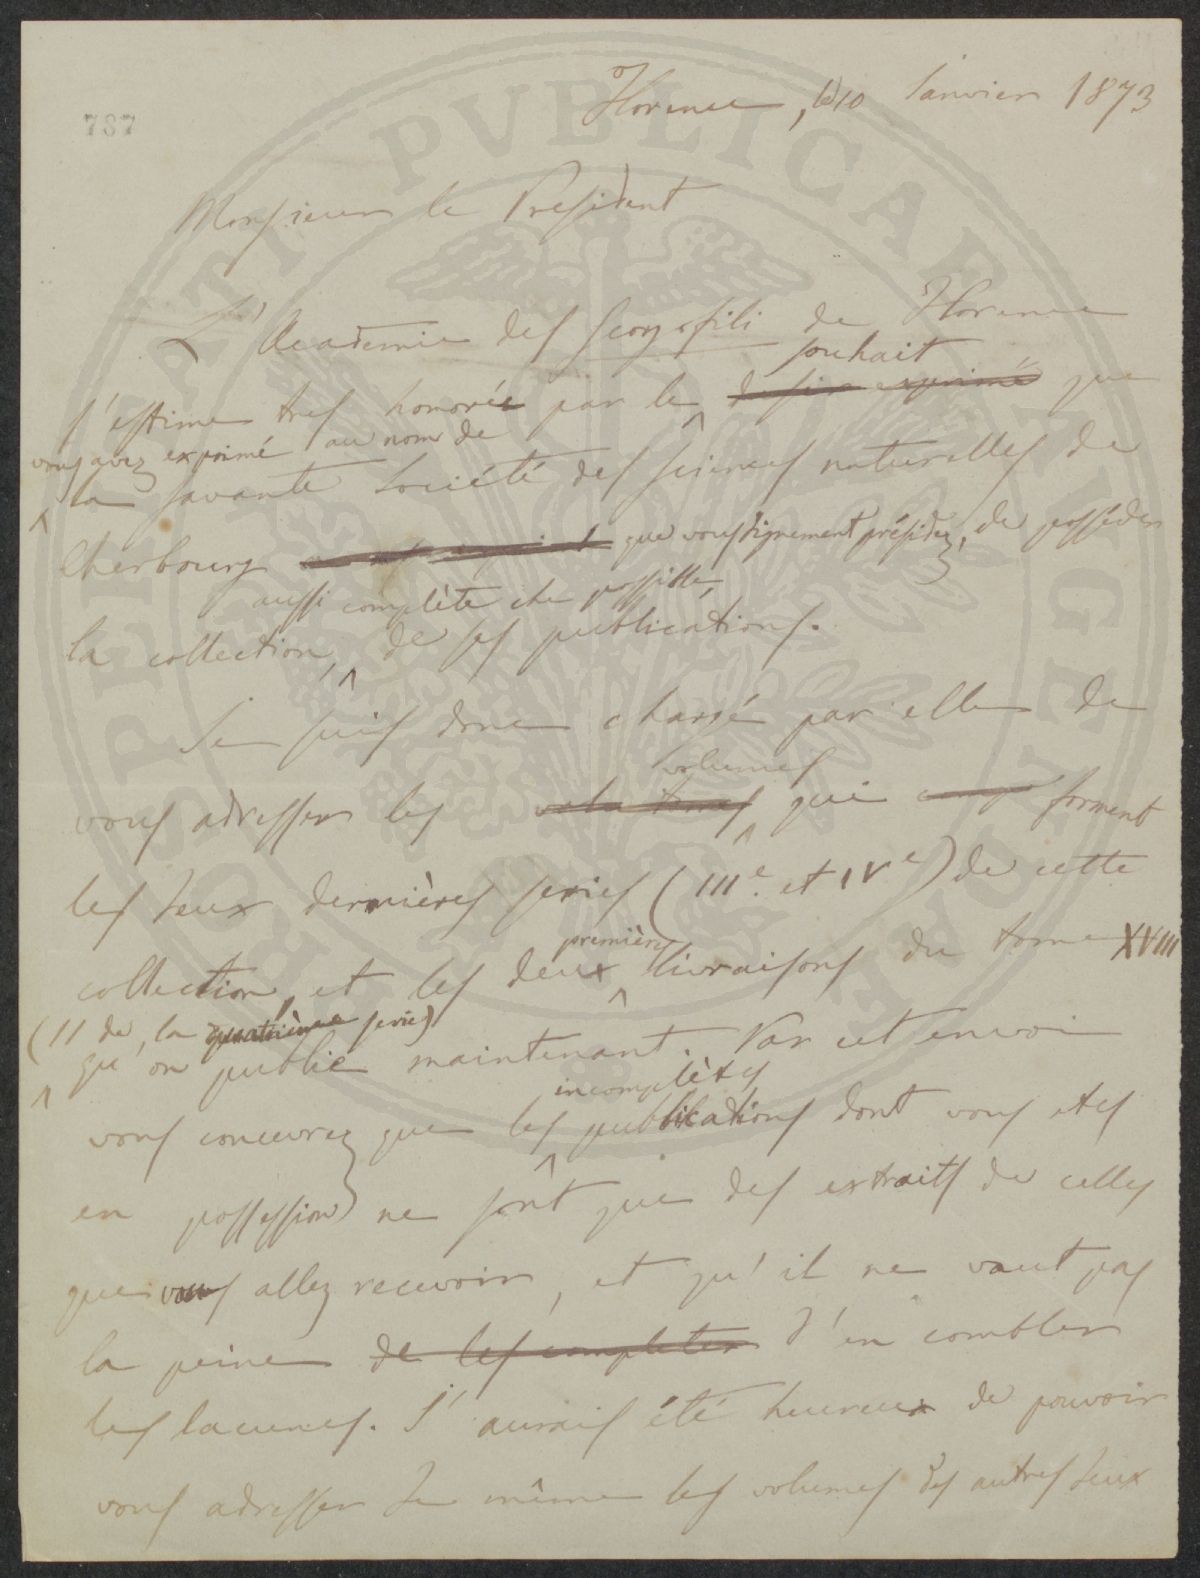 787
Florence, le 10 Janvier 1873
Monsieur le President
L'Academie des Georgofili de Florence
souhait
s'estime tres honorée par le desir exprimé que
vous avez exprimé au nom de
la savante Société des sciences naturelles de
Cherbourg que vous dignement présidez, de posséder
aussi complète che possible,
la collection, de ses publications.
Je suis donc chargé par elle de
volumes
vous adresser les qui forment
les deux dernières series (IIIe et IVe) de cette
premières
collection, et les deux livraisons du tome XVIII
(II de la quatrième serie)
qu'on publie maintenant. Par cet envoi
incomplètes
vous concevrez que les publications dont vous etes
en possession ne sont que des extraits de celles
que vous allez recevoir, et qu'il ne vaut pas
la peine de les completer d'en combler
les lacunes. J'aurais été heureux de pouvoir
vous adresser de même les volumes des autres deux
PVBLICAE
PROSPERITATI